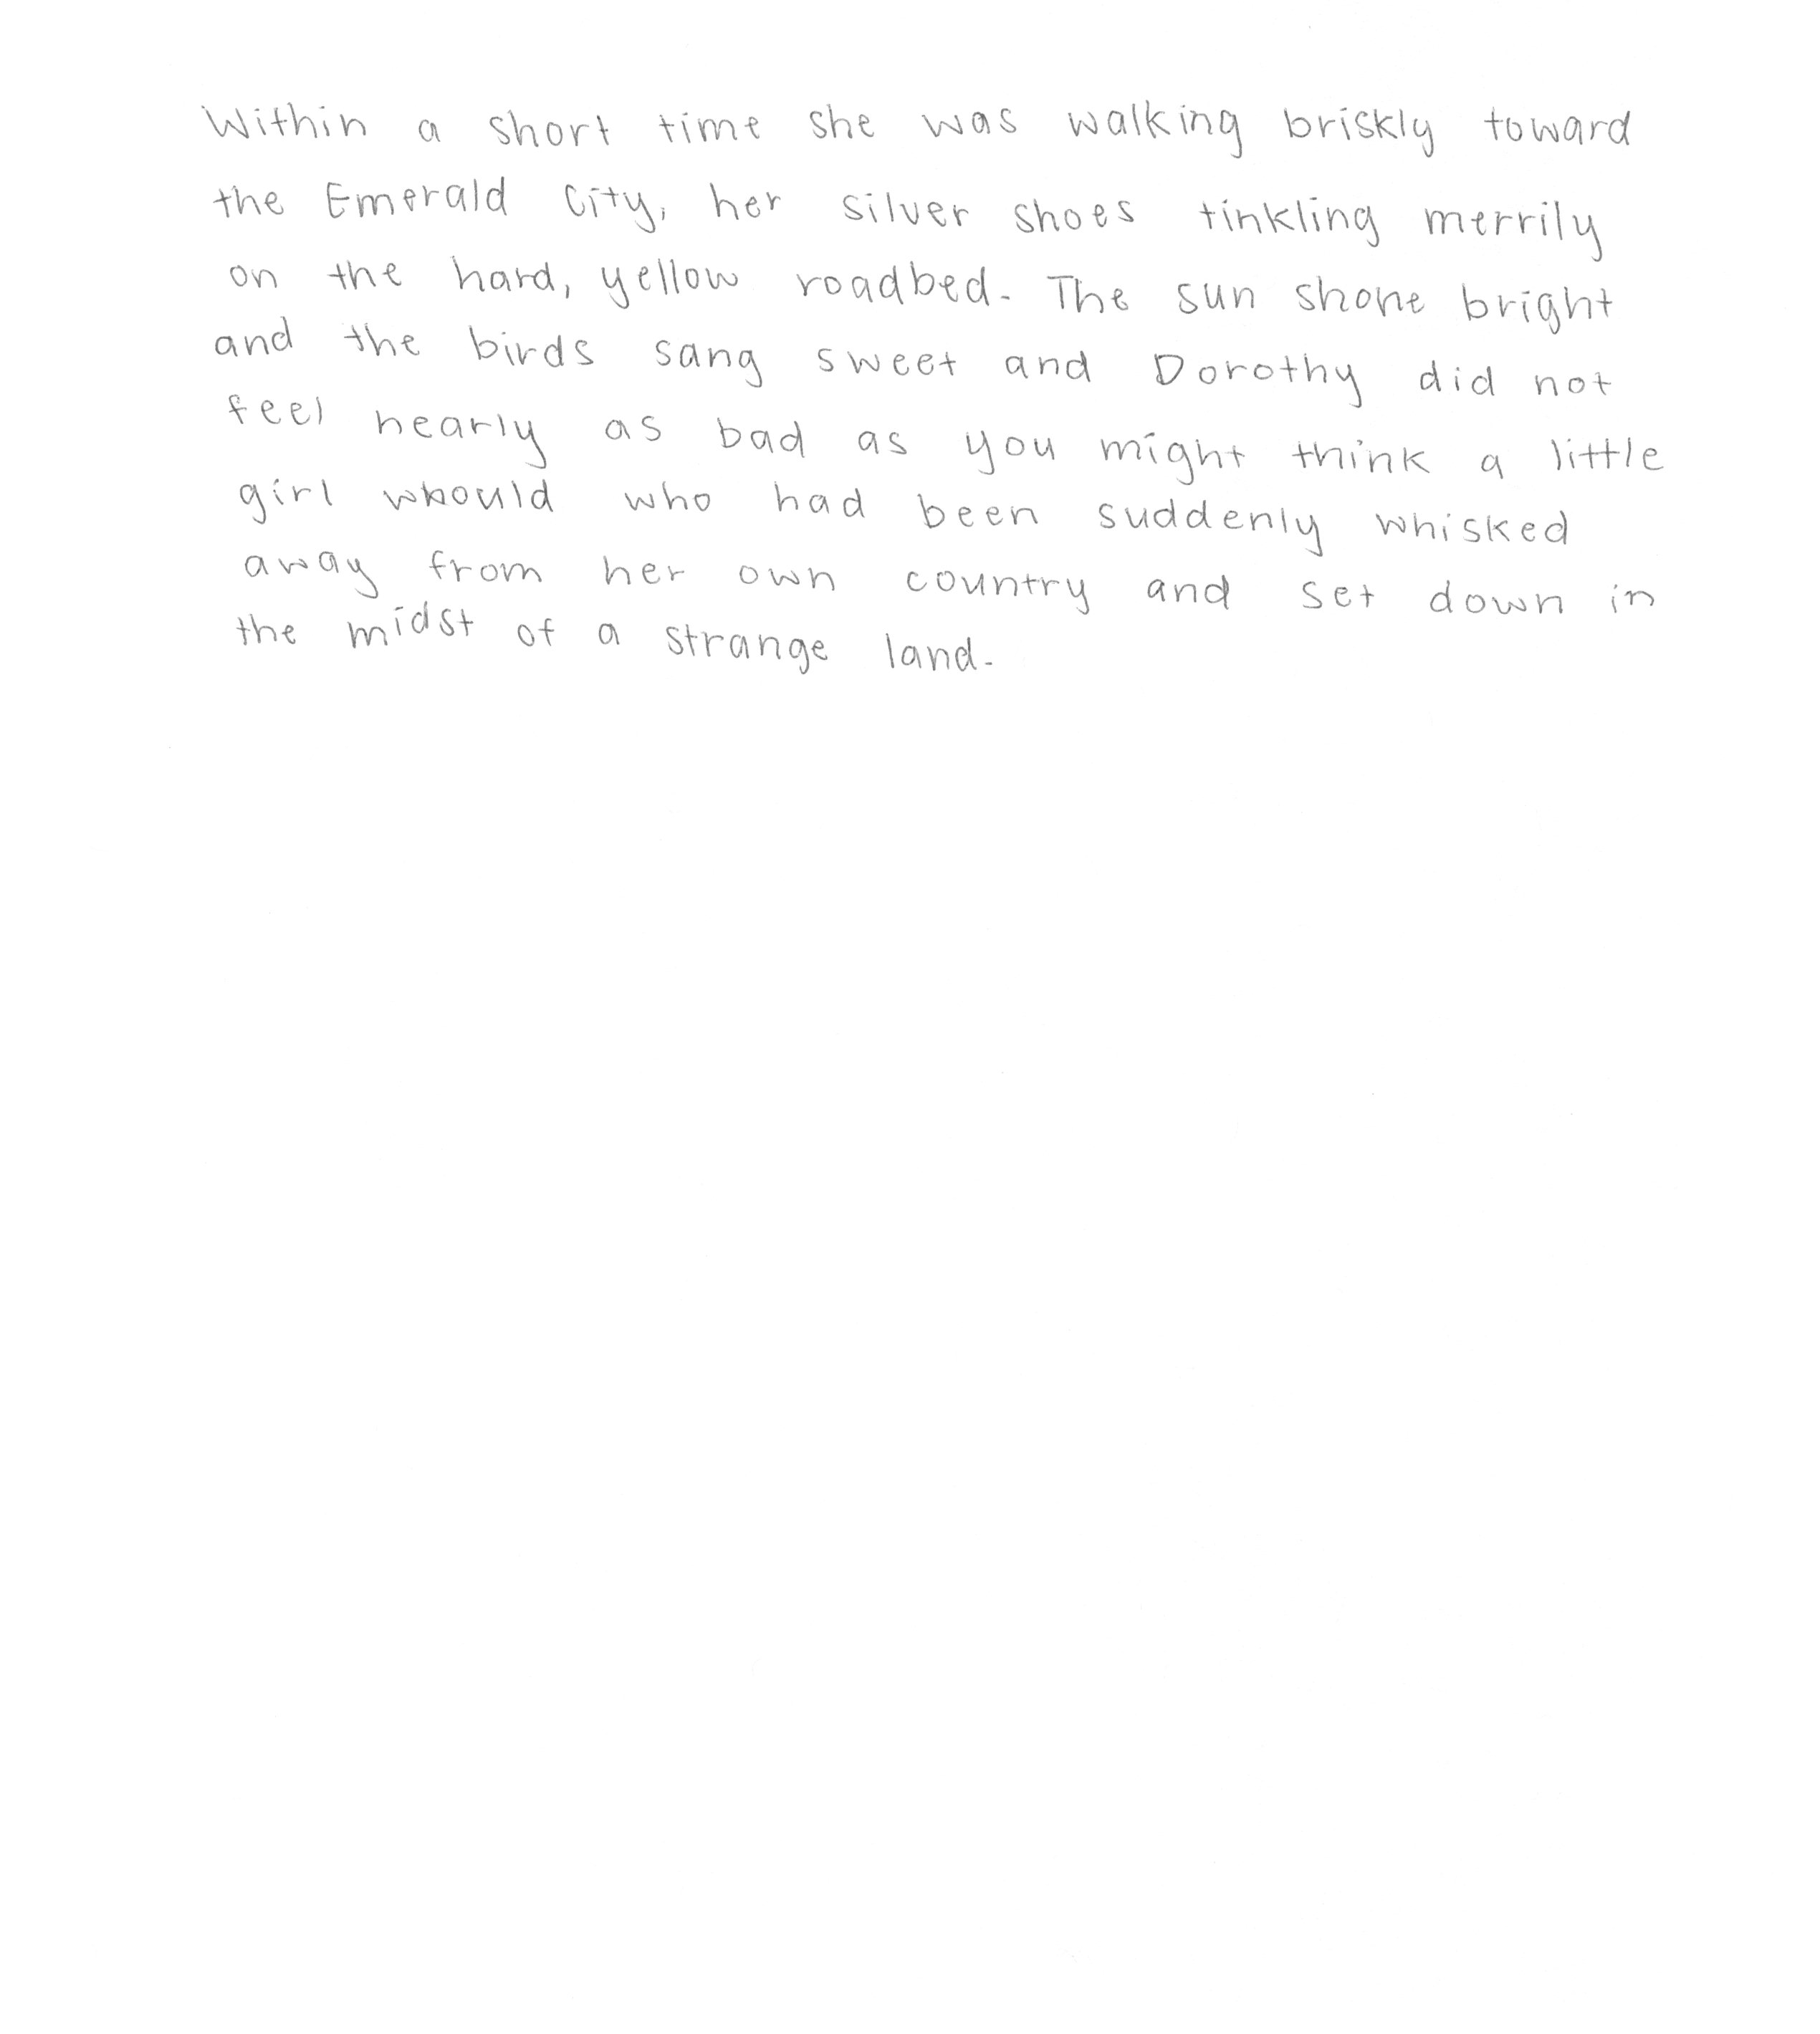 Within a short time she was walking briskly toward
the Emerald City, her silver shoes tinkling merrily
on the hard, yellow roadbed. The sun shone bright
and the birds sang sweet and Dorothy did not
feel nearly as bad as you might think a little
girl whould who had been suddenly whisked
away from her own country and set down in
the midst of a strange land.